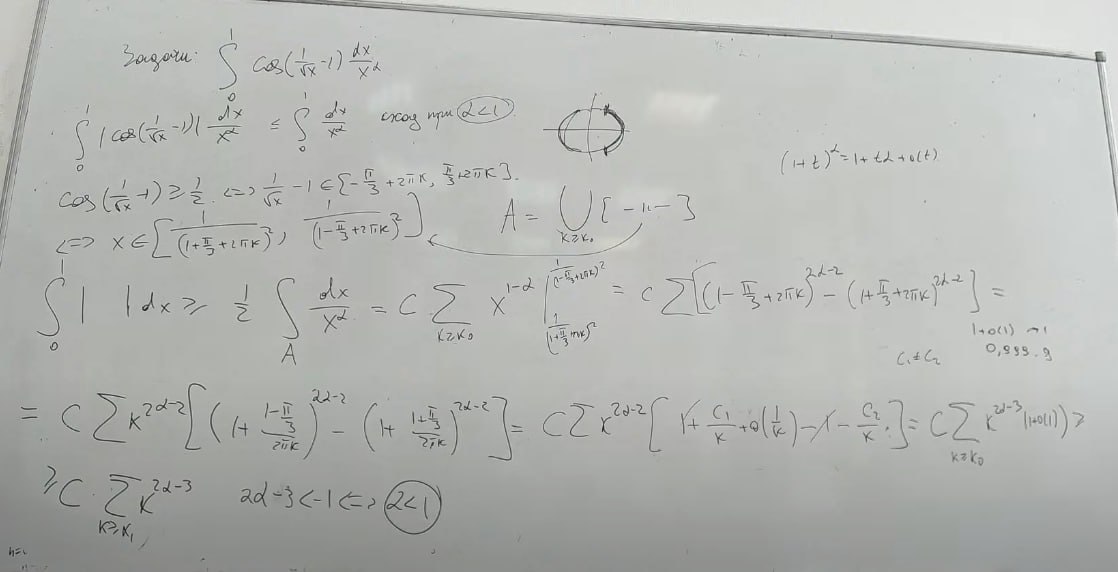 Задачи: ∫₀¹ cos(1/√x − 1) dx/x^α
∫₀¹ |cos(1/√x − 1)| dx/x^α ≤ ∫₀¹ dx/x^α сход при α<1
(1+t)^α = 1+tα+o(t)
cos(1/√x − 1) ≥ 1/2 <=> 1/√x − 1 ∈ [−π/3 + 2πk, π/3 + 2πk].
<=> x ∈ [1/(1+π/3+2πk)², 1/(1−π/3+2πk)²] A = ⋃_{k≥k₀} [ −ıı− ]
∫₀¹ | | dx ≥ 1/2 ∫_A dx/x^α = C ∑_{k≥k₀} x^{1−α} |_{1/(1+π/3+2πk)²}^{1/(1−π/3+2πk)²} = C ∑ [(1−π/3+2πk)^{2α−2} − (1+π/3+2πk)^{2α−2}] =
1+o(1) → 1
C₁≠C₂ 0,999..9
= C ∑ k^{2α−2} [(1 + (1−π/3)/2πk)^{2α−2} − (1 + (1+π/3)/2πk)^{2α−2}] = C ∑ k^{2α−2} [1 + C₁/k + o(1/k) − 1 − C₂/k.] = C ∑_{k≥k₀} k^{2α−3} (1+o(1)) ≥
≥ C · ∑_{k≥k₁} k^{2α−3} 2α−3<−1 <=> α<1